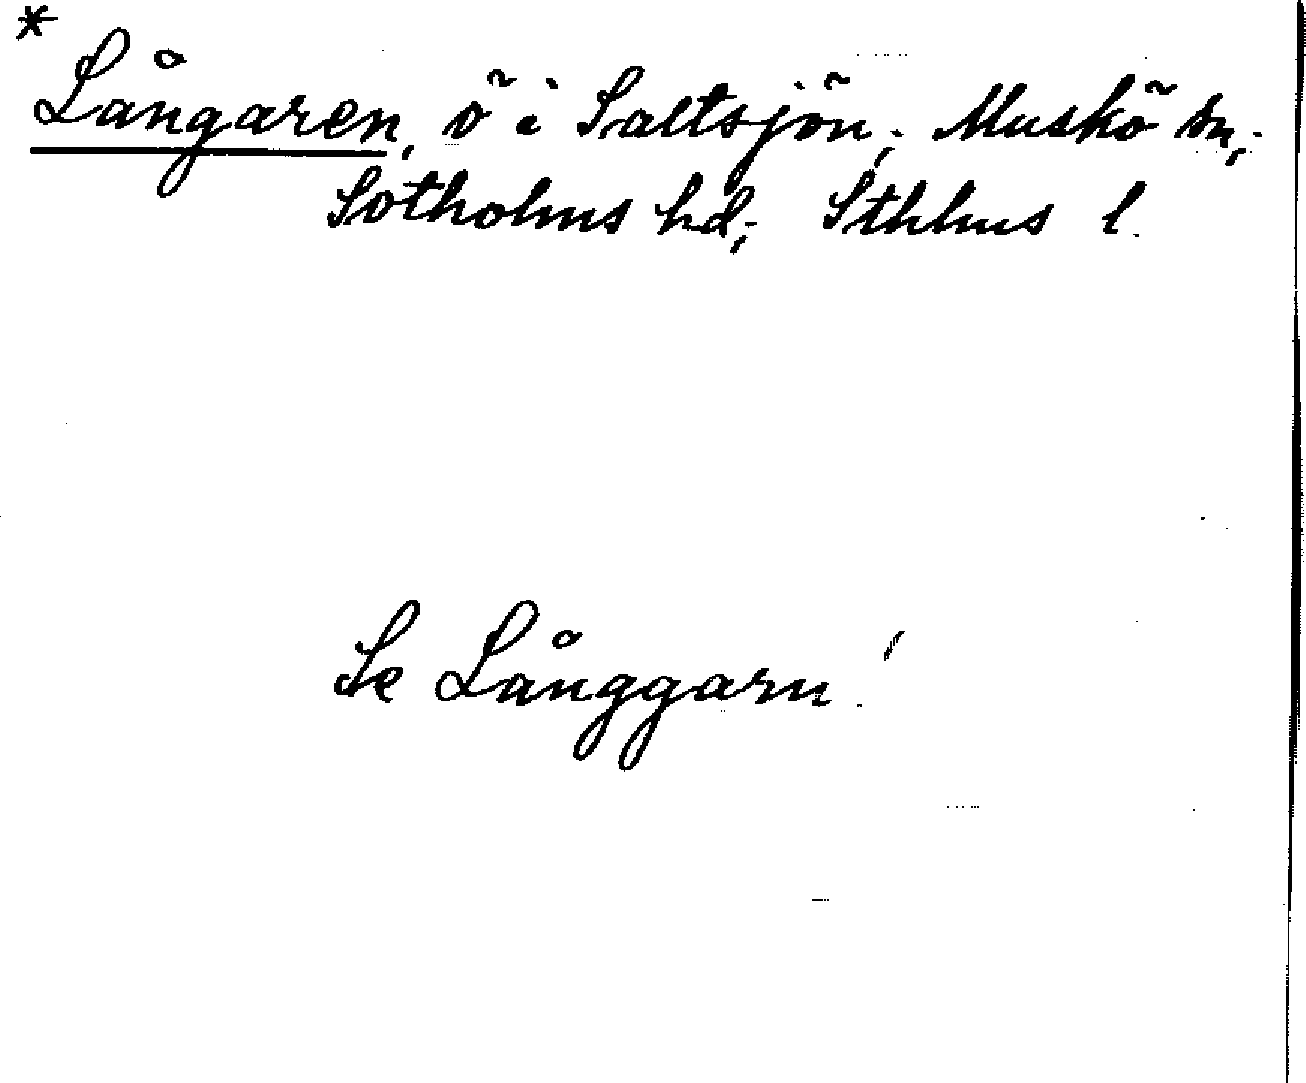 * Långaren, ö i Saltsjön, Muskö sn,
Sotholms hd, Sthlms l.
Se Långgarn!